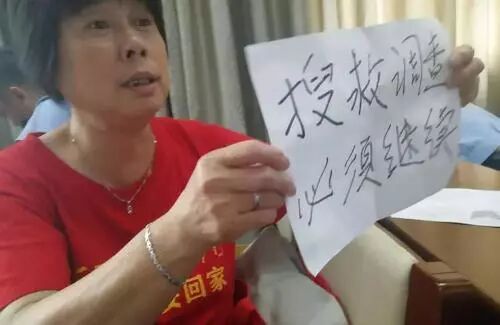 搜救调查
必须继续
回家